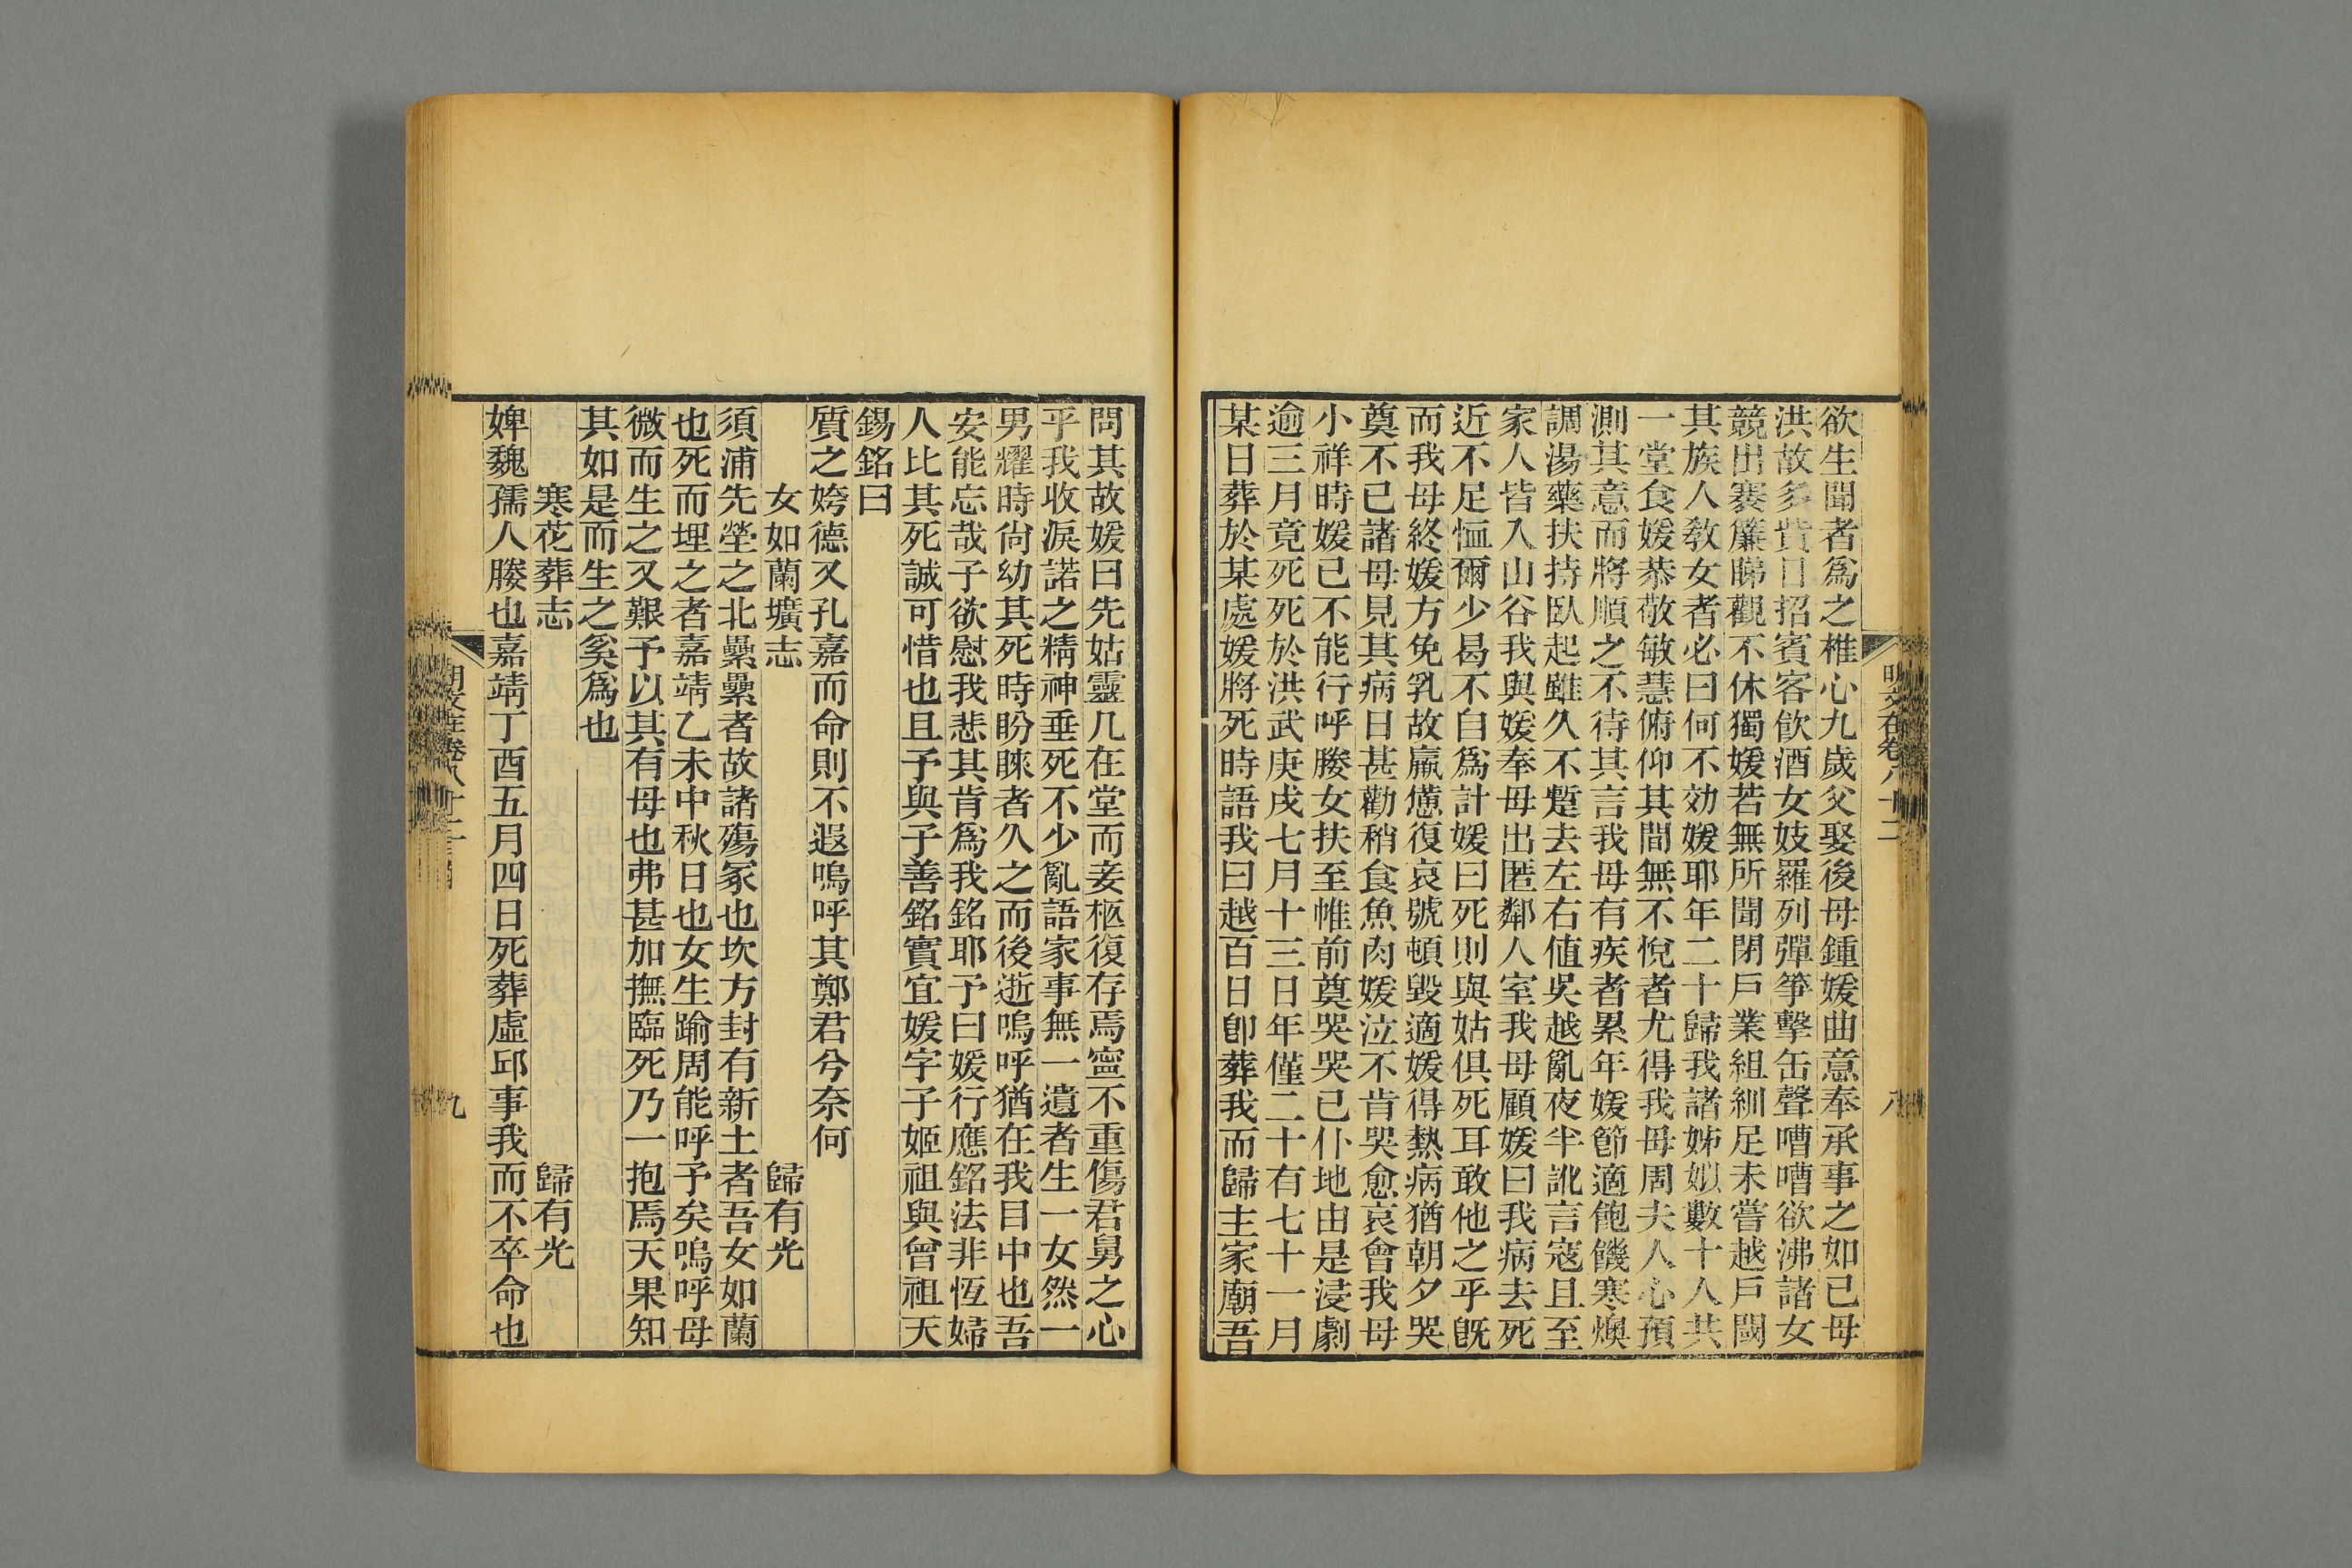 明文在卷八十二
八
欲生聞者爲之椎心九歲父娶後母鍾媛曲意奉承事之如己母
洪故多貲日招賓客飮酒女妓羅列彈箏擊缶聲嘈嘈欲沸諸女
競出褰簾睇觀不休獨媛若無所聞閉戶業組紃足未嘗越戶閾
其族人敎女者必曰何不効媛耶年二十歸我諸姊姒數十人共
一堂食媛恭敬敏慧俯仰其間無不悅者尤得我母周夫人心預
測其意而將順之不待其言我母有疾者累年媛節適飽饑寒燠
調湯藥扶持臥起雖久不蹔去左右値吳越亂夜半訛言寇且至
家人皆入山谷我與媛奉母出匿鄰人室我母顧媛曰我病去死
近不足恤爾少曷不自爲計媛曰死則與姑俱死耳敢他之乎旣
而我母終媛方免乳故羸憊復哀號頓毀適媛得熱病猶朝夕哭
奠不已諸母見其病日甚勸稍食魚肉媛泣不肯哭愈哀會我母
小祥時媛已不能行呼媵女扶至帷前奠哭哭已仆地由是浸劇
逾三月竟死死於洪武庚戌七月十三日年僅二十有七十一月
某日葬於某處媛將死時語我曰越百日卽葬我而歸主家廟吾
問其故媛曰先姑靈几在堂而妾柩復存焉寍不重傷君舅之心
乎我收淚諾之精神垂死不少亂語家事無一遺者生一女然一
男耀時尙幼其死時盼睞者久之而後逝嗚呼猶在我目中也吾
安能忘哉子欲慰我悲其肯爲我銘耶予曰媛行應銘法非恆婦
人比其死誠可惜也且予與子善銘實宜媛字子姬祖與曾祖天
錫銘曰
質之姱德又孔嘉而命則不遐嗚呼其鄭君兮奈何
女如蘭壙志　歸有光
須浦先塋之北纍纍者故諸殤冢也坎方封有新土者吾女如蘭
也死而埋之者嘉靖乙未中秋日也女生踰周能呼予矣嗚呼母
微而生之又艱予以其有母也弗甚加撫臨死乃一抱焉天果知
其如是而生之奚爲也
寒花葬志　歸有光
婢魏孺人媵也嘉靖丁酉五月四日死葬虛邱事我而不卒命也
九